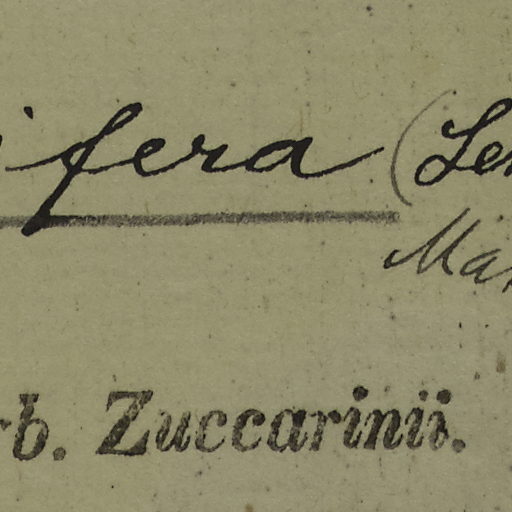 ifera (Le
Ma
rb. Zuccarinii.